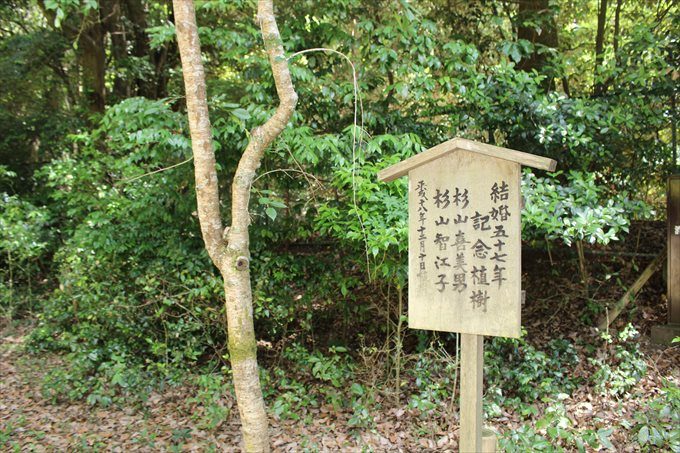 結婚五十七年
記念植樹
杉山喜美男
杉山智江子
平成十八年十二月十日